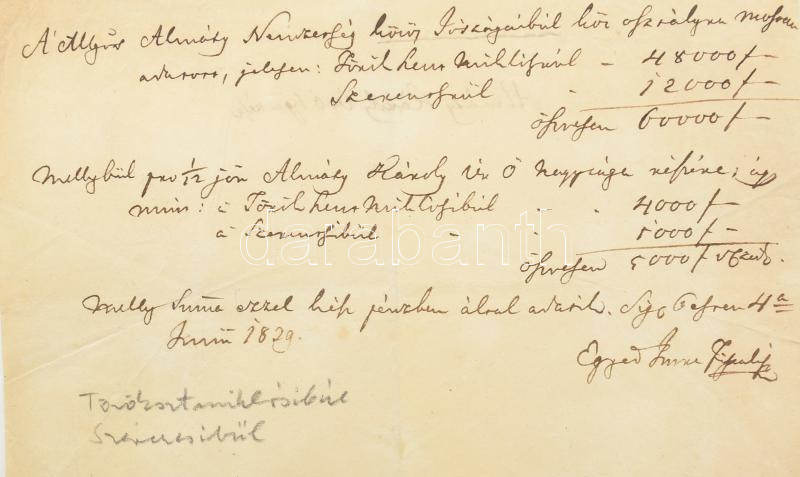 A Mgos Almásy Nemzetség közös Jószágaiból köz osztályra mostan
adatott, jelesen: Török Szent Miklósrul – 48000 f –
Szerencsrűl " 12000 f –
öszvesen 60000 f –
Mellybűl pro 1/12 jön Almásy Károly Úr Ő Nagysága részére; úgy
mint: a Török Szent Miklósibúl - - 4000 f –
a Szerencsibűl - - 1000 f –
öszvesen 5000 f
Melly Summa ezzel kész pénzben által adatik. Sig. Pesten 4a
Junii 1829.
Egyed Imre Fiscalis
darabanth
Törökszt miklósibúl
Szerencsibűl